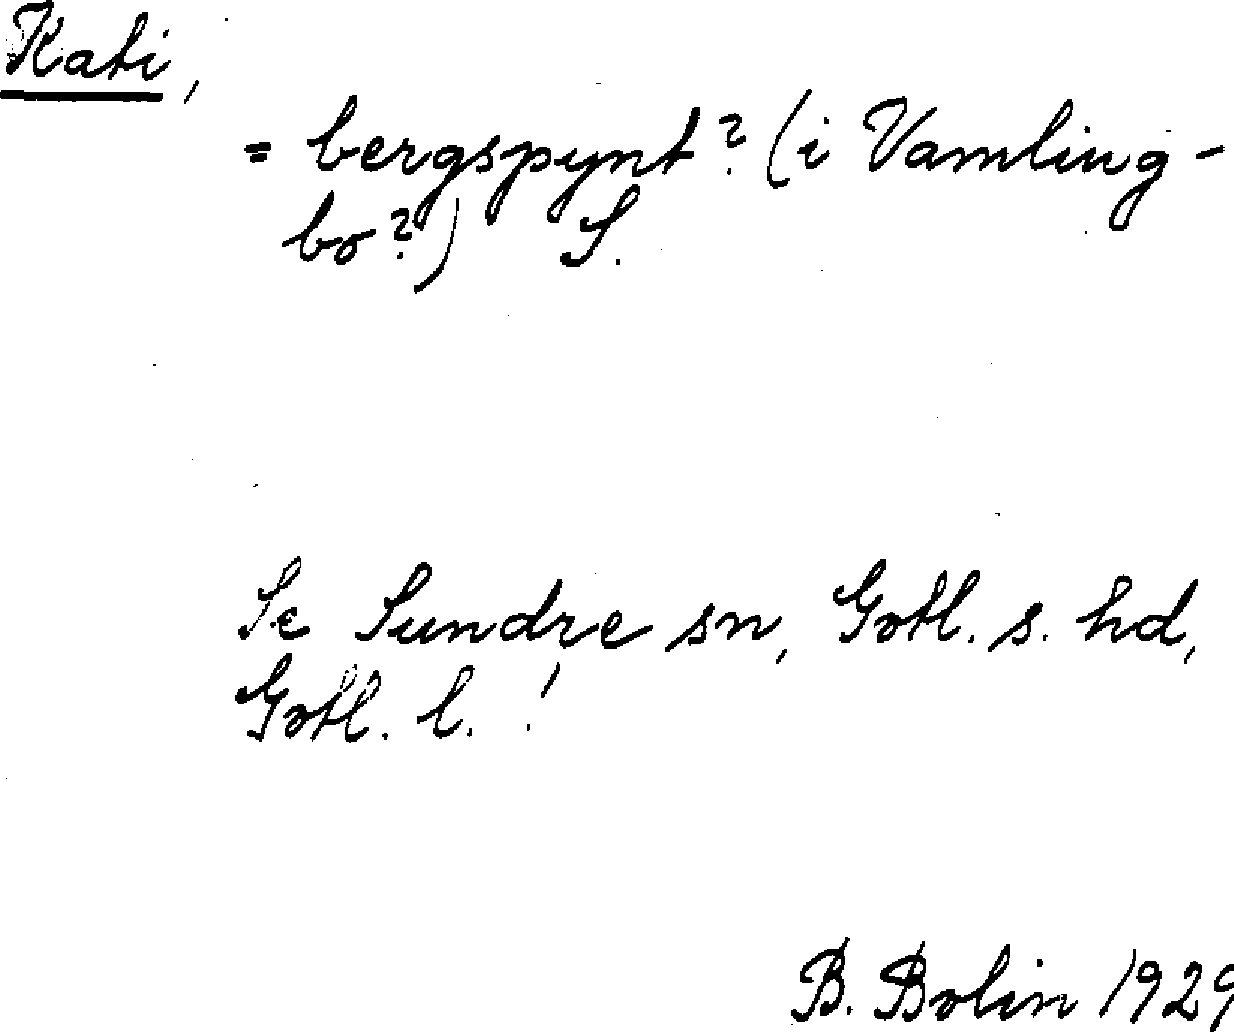 Kati,
= bergspynt? (i Vamling-
bo?) S.
Se Sundre sn, Gotl. s. hd,
Gotl. l. !
B. Bolin 1929